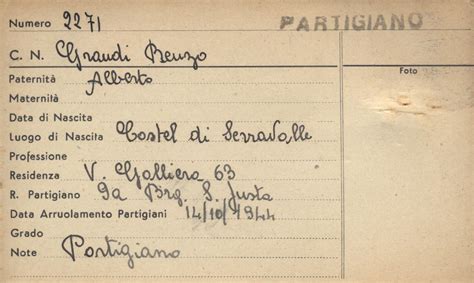 Numero 2271 PARTIGIANO
C. N. Grandi Renzo
Foto
Paternità Alberto
Maternità
Data di Nascita
Luogo di Nascita Castel di Serravalle
Professione
Residenza V. Galliera 63
R. Partigiano 9a Brg. S. Justa
Data Arruolamento Partigiani 14/10/1944
Grado
Note Partigiano